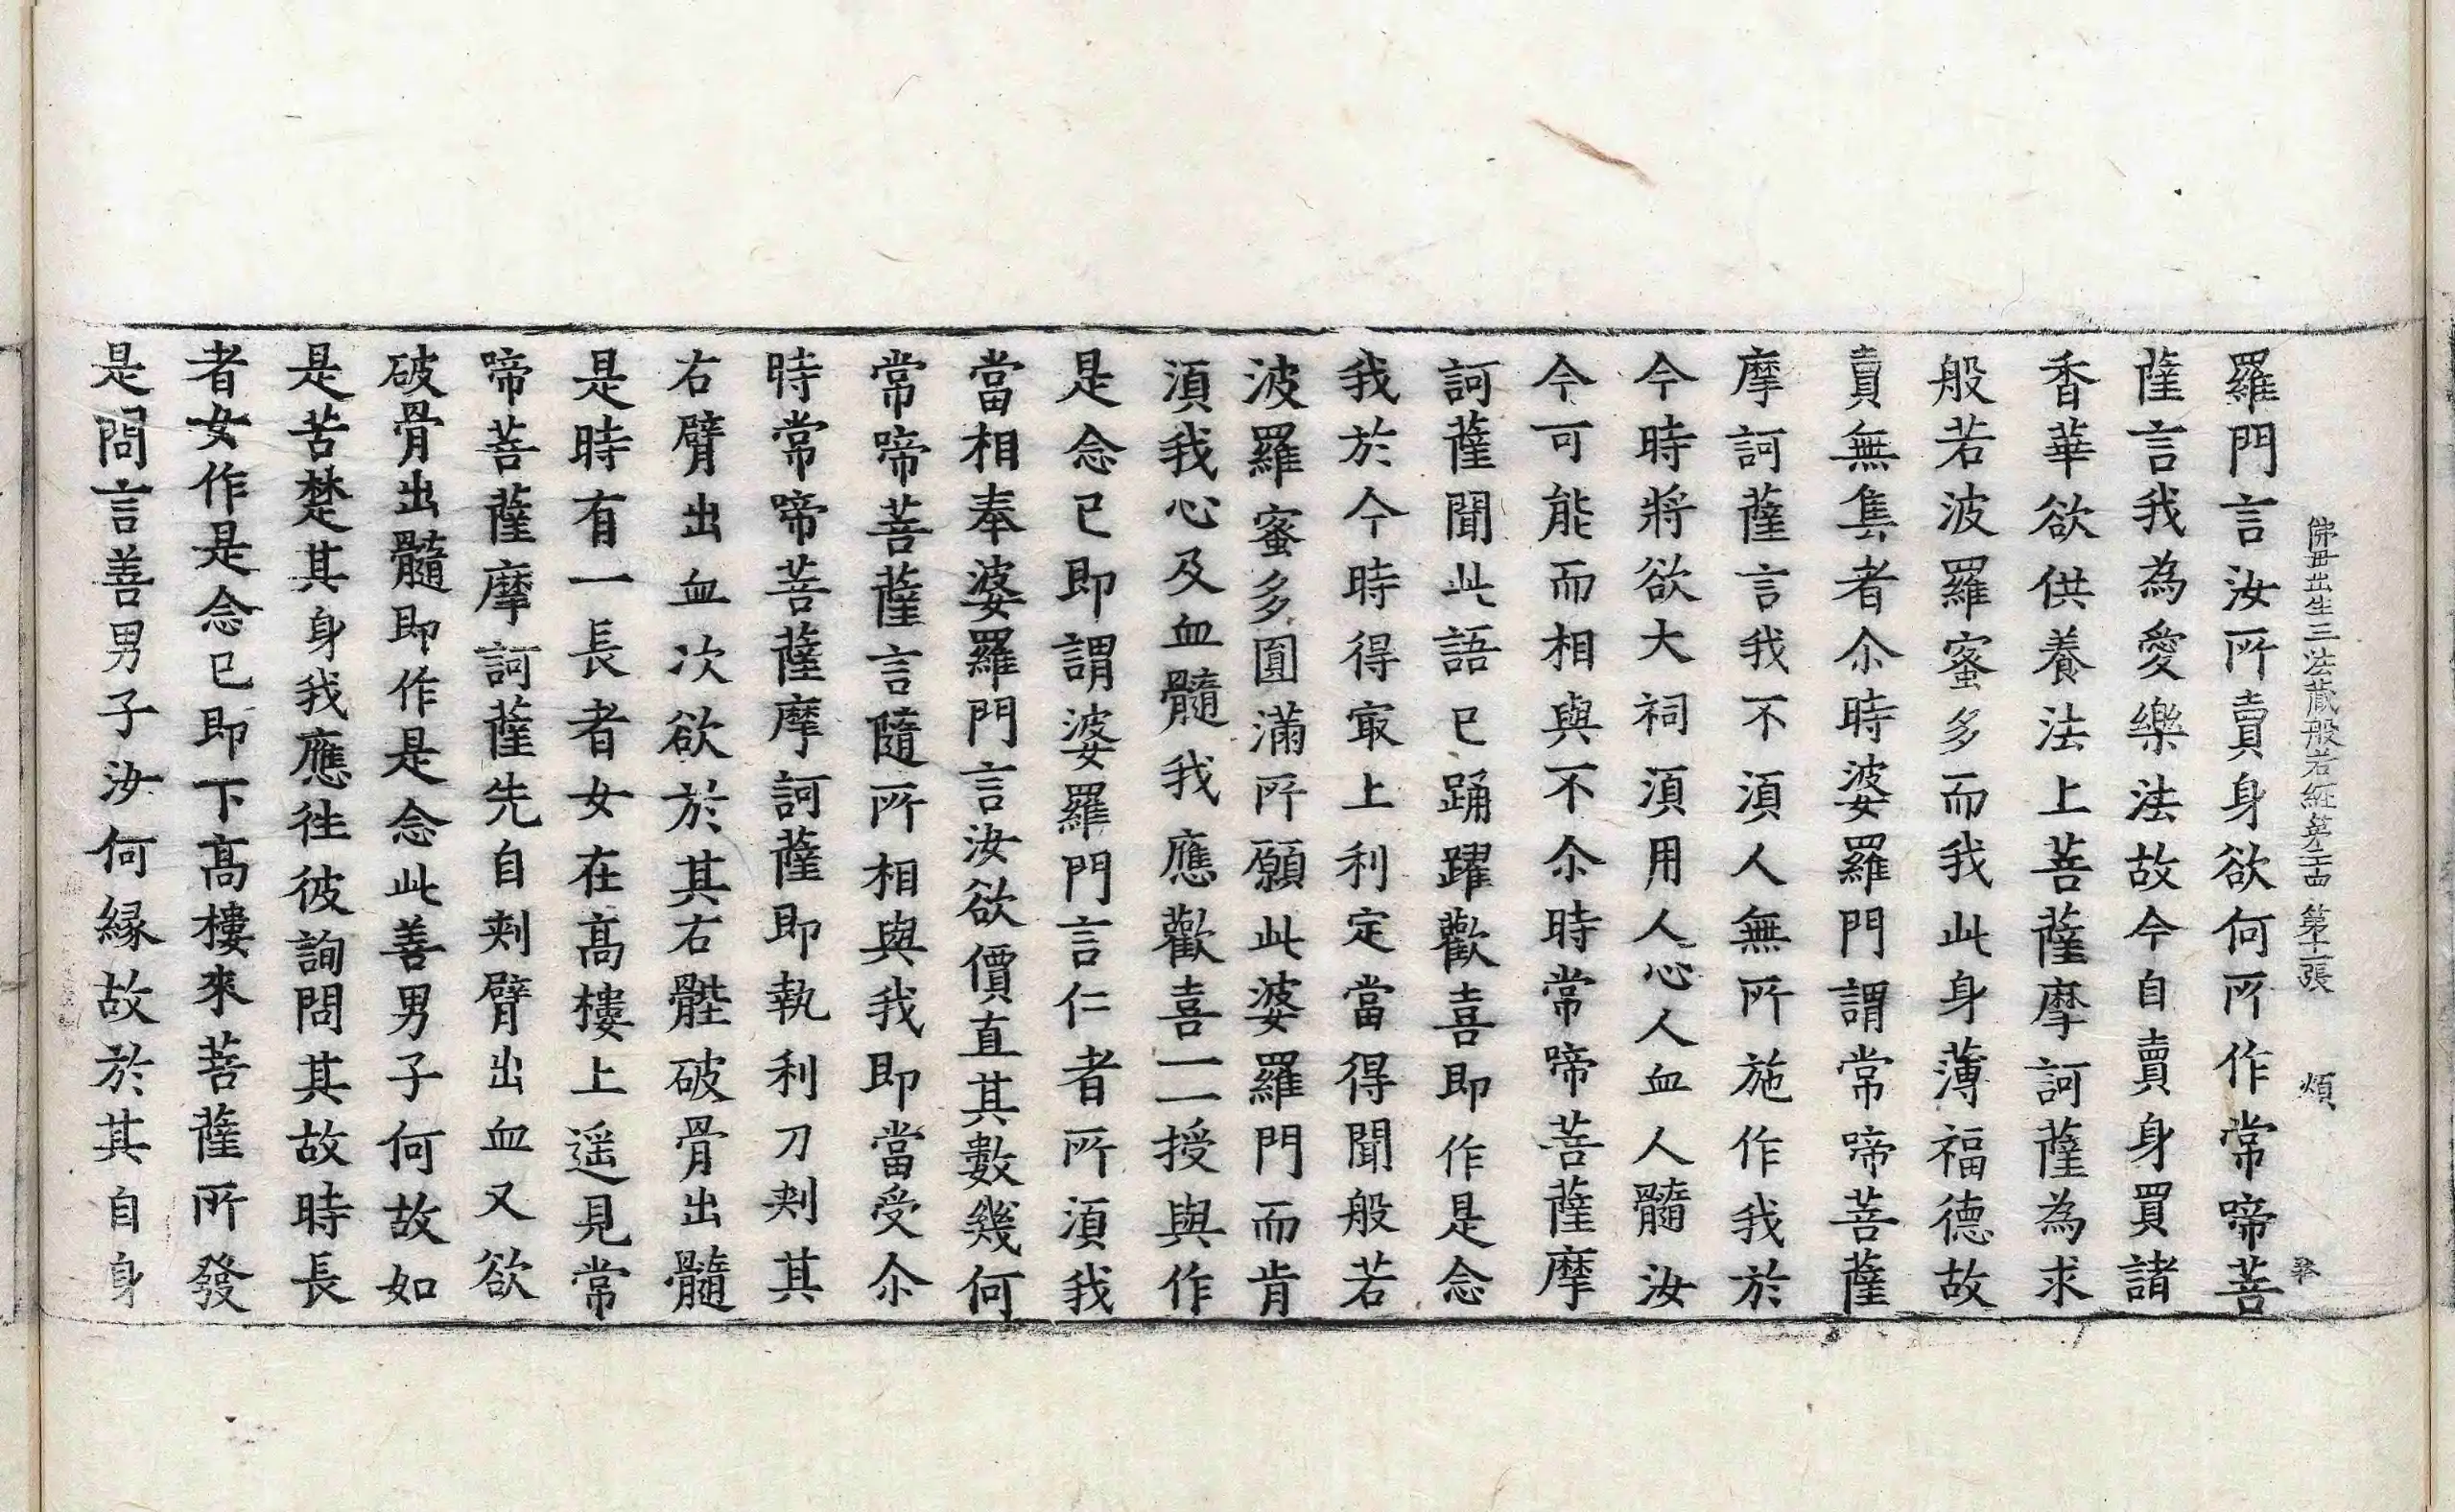 佛母出生三法藏般若經第二十四 第十二張 煩
羅門言汝所賣身欲何所作常啼菩
薩言我為愛樂法故今自賣身買諸
香華欲供養法上菩薩摩訶薩為求
般若波羅蜜多而我此身薄福德故
賣無售者尒時婆羅門謂常啼菩薩
摩訶薩言我不湏人無所施作我於
今時將欲大祠湏用人心人血人髓汝
今可能而相與不尒時常啼菩薩摩
訶薩聞此語已踊躍歡喜即作是念
我於今時得㝡上利定當得聞般若
波羅蜜多圓滿所願此婆羅門而肯
湏我心及血髓我應歡喜一一授與作
是念已即謂婆羅門言仁者所湏我
當相奉婆羅門言汝欲價直其數幾何
常啼菩薩言隨所相與我即當受尒
時常啼菩薩摩訶薩即執利刀刾其
右臂出血次欲於其右髀破骨出髓
是時有一長者女在髙樓上遥見常
啼菩薩摩訶薩先自刾臂出血又欲
破骨出髓即作是念此善男子何故如
是苦楚其身我應徃彼詢問其故時長
者女作是念已即下髙樓來菩薩所發
是問言善男子汝何縁故於其自身